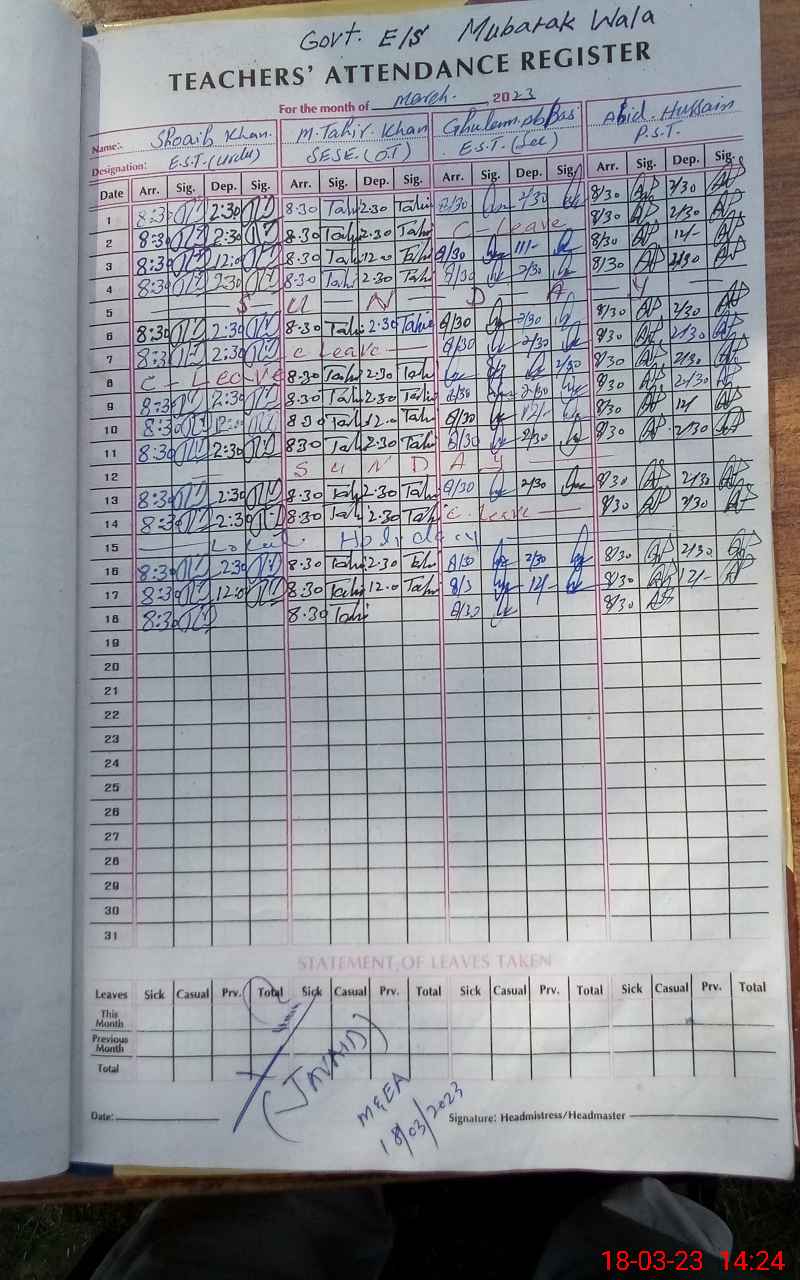 Govt. E/S Mubarak Wala
TEACHERS' ATTENDANCE REGISTER
For the month of March. , 2023
Name:. Shoaib Khan. M. Tahir. Khan Abid. Hussain
Designation: E.S.T. (Urdu) SESE. (O.T) E.S.T. (Sec) P.S.T.
Date Arr. Sig. Dep. Sig. Arr. Sig. Dep. Sig. Arr. Sig. Dep. Sig. Arr. Sig. Dep. Sig.
1 8:30 2:30 8.30 Tahir 2.30 Tahir 8/30 2/30 8/30 2/30
2 8:30 2:30 8.30 Tahir 2.30 Tahir C-Leave 8/30 2/30
3 8:30 12:00 8.30 Tahir 12.00 Tahir 8/30 11/- 8/30 12/-
4 8:30 2:30 8.30 Tahir 2.30 Tahir 8/30 2/30 8/30 2/30
5 S U N D A Y
6 8:30 2:30 8.30 Tahir 2.30 Tahir 8/30 2/30 8/30 2/30
7 8:30 2:30 C Leave 8/30 2/30 8/30 2/30
8 C - Leave 8.30 Tahir 2.30 Tahir 2/30 8/30 2/30
9 8:30 2:30 8.30 Tahir 2.30 Tahir 8/30 2/30 8/30 2/30
10 8:30 12:00 8.30 Tahir 12.0 Tahir 8/30 12/- 8/30 12/
11 8:30 2:30 8.30 Tahir 2.30 Tahir 8/30 2/30 8/30 2/30
12 S U N D A Y
13 8:30 2:30 8.30 Tahir 2.30 Tahir 8/30 2/30 8/30 2/30
14 8:30 2:30 8.30 Tahir 2.30 Tahir C. Leave 8/30 2/30
15 Local. Holy day
16 8:30 2:30 8.30 Tahir 2.30 Tahir 8/30 2/30 8/30 2/30
17 8:30 12:00 8.30 Tahir 12.0 Tahir 8/3 12/- 8/30 12/-
18 8:30 8.30 Tahir 8/30 8/30
19
20
21
22
23
24
25
26
27
28
29
30
31
STATEMENT OF LEAVES TAKEN
Leaves Sick Casual Prv. Total Sick Casual Prv. Total Sick Casual Prv. Total Sick Casual Prv. Total
This
Month
Previous
Month
Total
(JAVAID)
MEEA
18/03/2023
Date: Signature: Headmistress/Headmaster
18-03-23 14:24